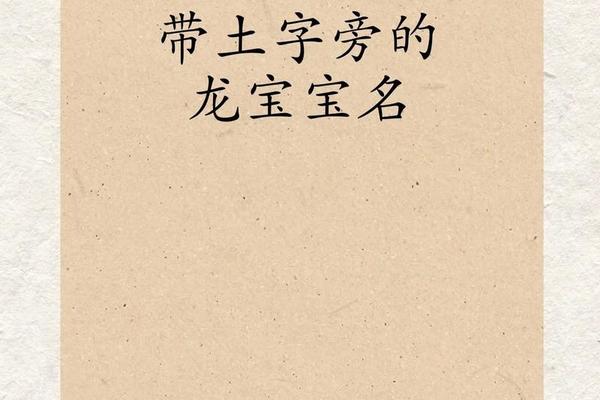 带土字旁的
龙宝宝名